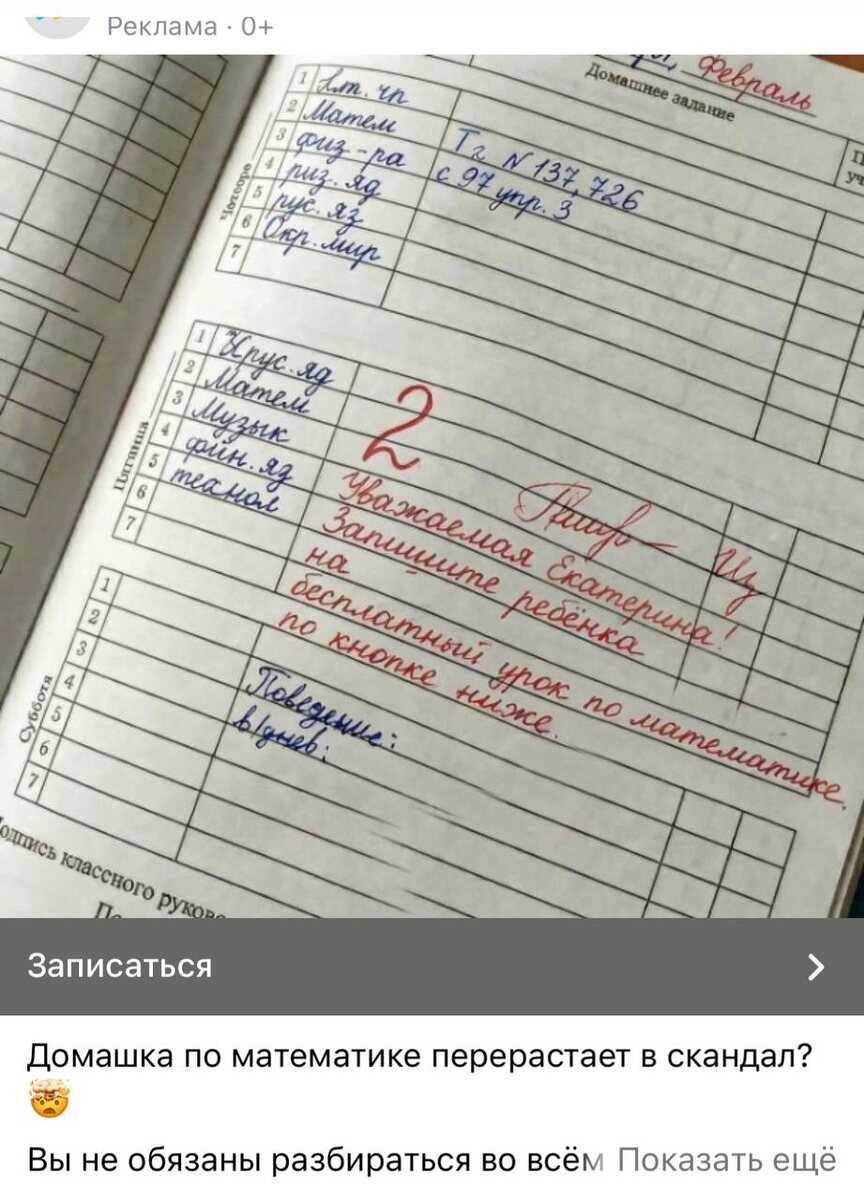 Реклама · 0+
Февраль
Домашнее задание
1 Лт. чп
2 Матем
3 физ-ра
4 пиз. яд
5 рус. яз
6 Окр. мир
7
Тг N 137, 726
с 97 упр. 3
1
2 Матем
3 Музык
4 фин. яз
5 технол
6
7
Пятница
2
Уважаемая Екатерина!
Запишите ребёнка
на
бесплатный урок по математике.
по кнопке ниже.
1
2
3
4
5
6
7
Суббота
Поведение:
в/днев:
одпись классного руково
Записаться
Домашка по математике перерастает в скандал?
🤯
Вы не обязаны разбираться во всём Показать ещё